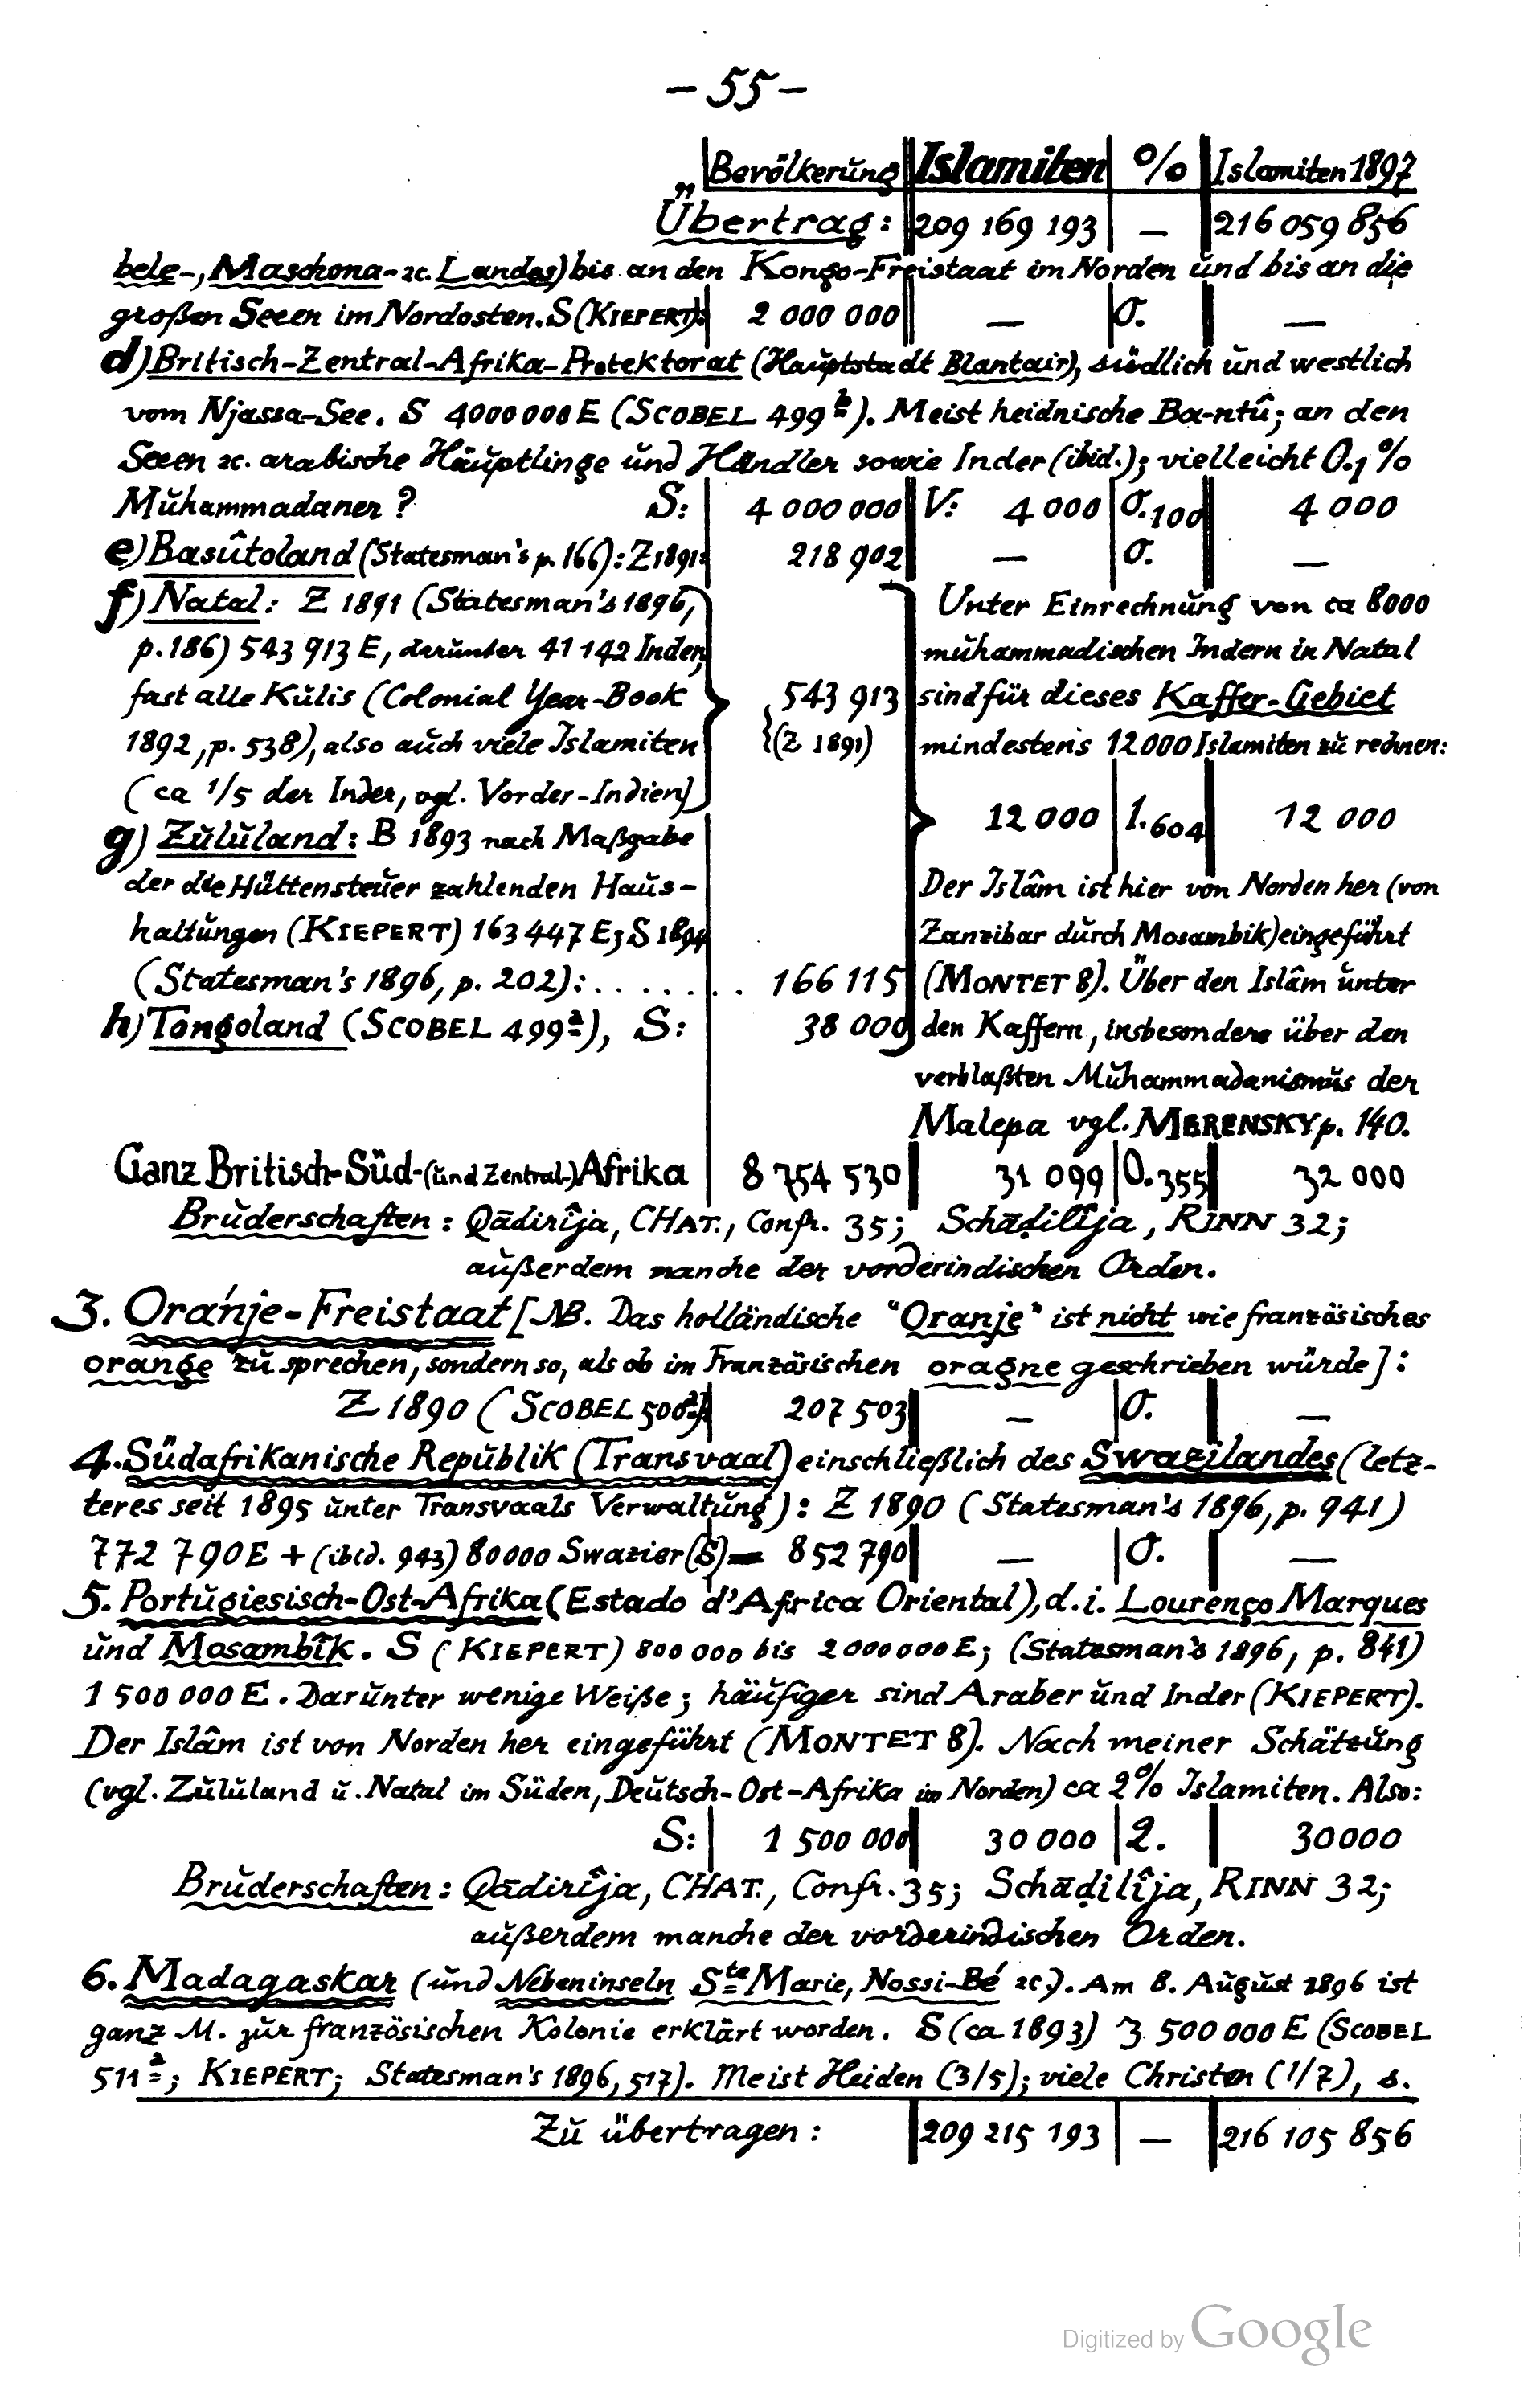 – 55 –
Bevölkerung Islamiten % Islamiten 1897
Übertrag: 209 169 193 — 216 059 856
bele-, Maschona- ꝛc. Landes) bis an den Kongo-Freistaat im Norden und bis an die
großen Seeen im Nordosten. S (KIEPERT): 2 000 000 — 0. —
d) Britisch-Zentral-Afrika-Protektorat (Hauptstadt Blantair), südlich und westlich
vom Njassa-See. S 4000000 E (SCOBEL 499 b). Meist heidnische Ba-ntû; an den
Seeen ꝛc. arabische Häuptlinge und Händler sowie Inder (ibid.); vielleicht 0.1 %
Muhammadaner? S: 4 000 000 V: 4 000 0.100 4 000
e) Basûtoland (Statesman's p. 166): Z 1891: 218 902 — 0. —
f) Natal: Z 1891 (Statesman's 1896, Unter Einrechnung von ca 8000
p. 186) 543 913 E, darunter 41 142 Inder, muhammadischen Indern in Natal
fast alle Kulis (Colonial Year-Book 543 913 sind für dieses Kaffer-Gebiet
1892, p. 538), also auch viele Islamiten (Z 1891) mindestens 12000 Islamiten zu rechnen:
(ca 1/5 der Inder, vgl. Vorder-Indien) 12 000 1.604 12 000
g) Zululand: B 1893 nach Maßgabe
der die Hüttensteuer zahlenden Haus- Der Islâm ist hier von Norden her (von
haltungen (KIEPERT) 163 447 E; S 1894 Zanzibar durch Mosambik) eingeführt
(Statesman's 1896, p. 202): . . . . . . . . 166 115 (MONTET 8). Über den Islâm unter
h) Tongoland (SCOBEL 499 a), S: 38 000 den Kaffern, insbesondere über den
verblaßten Muhammadanismus der
Malepa vgl. MERENSKY p. 140.
Ganz Britisch-Süd-(und Zentral-)Afrika 8 754 530 31 099 0.355 32 000
Bruderschaften: Qādirîja, CHAT., Confr. 35; Schāḏilîja, RINN 32;
außerdem manche der vorderindischen Orden.
3. Oránje-Freistaat [NB. Das holländische "Oranje" ist nicht wie französisches
orange zu sprechen, sondern so, als ob im Französischen oragne geschrieben würde]:
Z 1890 (SCOBEL 500 a) 207 503 — 0. —
4. Südafrikanische Republik (Transvaal) einschließlich des Swazilandes (letz-
teres seit 1895 unter Transvaals Verwaltung): Z 1890 (Statesman's 1896, p. 941)
772 790 E + (ibid. 943) 80000 Swazier (S) = 852 790 — 0. —
5. Portugiesisch-Ost-Afrika (Estado d'Africa Oriental), d. i. Lourenço Marques
und Mosambîk. S (KIEPERT) 800 000 bis 2000000 E; (Statesman's 1896, p. 841)
1 500 000 E. Darunter wenige Weiße; häufiger sind Araber und Inder (KIEPERT).
Der Islâm ist von Norden her eingeführt (MONTET 8). Nach meiner Schätzung
(vgl. Zululand u. Natal im Süden, Deutsch-Ost-Afrika im Norden) ca 2% Islamiten. Also:
S: 1 500 000 30 000 2. 30000
Bruderschaften: Qādirîja, CHAT., Confr. 35; Schāḏilîja, RINN 32;
außerdem manche der vorderindischen Orden.
6. Madagaskar (und Nebeninseln Ste Marie, Nossi-Bé ꝛc). Am 8. August 1896 ist
ganz M. zur französischen Kolonie erklärt worden. S (ca 1893) 3 500 000 E (SCOBEL
511 a; KIEPERT; Statesman's 1896, 517). Meist Heiden (3/5); viele Christen (1/7), s.
Zu übertragen: 209 215 193 — 216 105 856
Digitized by Google